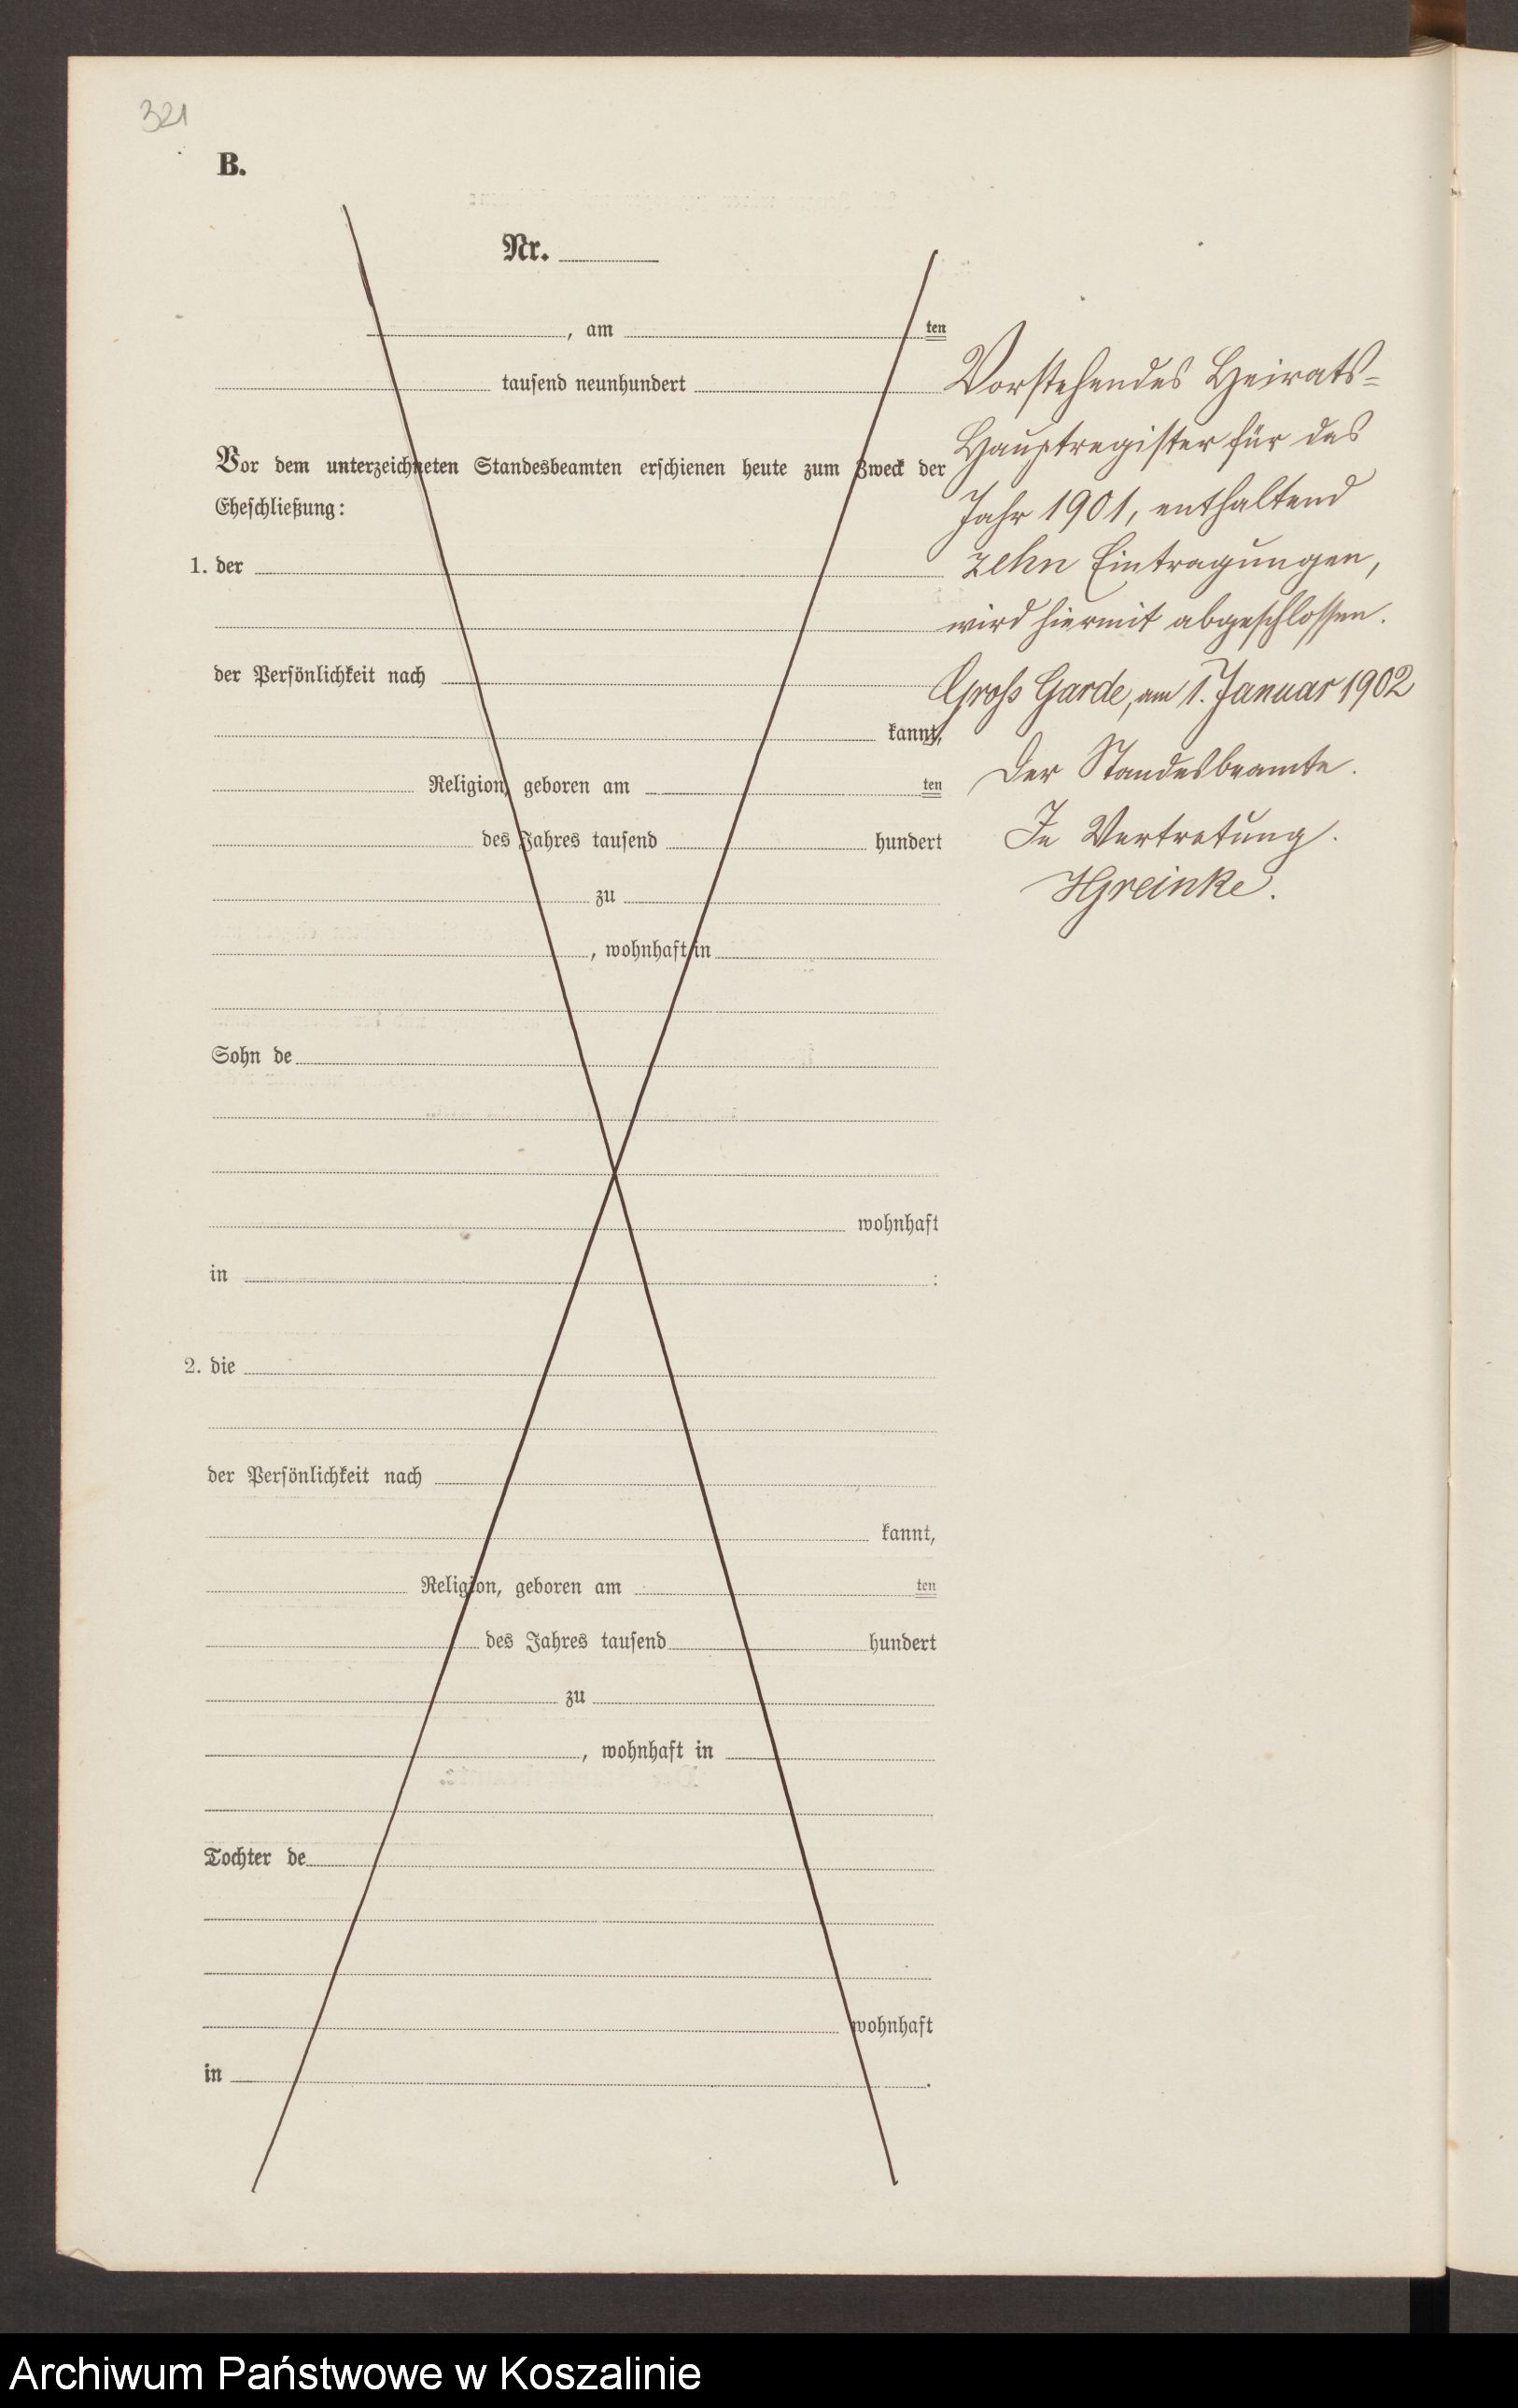 321
B.
Nr.
, am ten
tausend neunhundert
Vor dem unterzeichneten Standesbeamten erschienen heute zum Zweck der
Eheschließung:
1. der
der Persönlichkeit nach
kannt,
Religion, geboren am ten
des Jahres tausend hundert
zu
, wohnhaft in
Sohn de
wohnhaft
in :
2. die
der Persönlichkeit nach
kannt,
Religion, geboren am ten
des Jahres tausend hundert
zu
, wohnhaft in
Tochter de
wohnhaft
in .
Vorstehendes Heirats-
Hauptregister für das
Jahr 1901, enthaltend
zehn Eintragungen,
wird hiermit abgeschlossen.
Gross Garde, am 1. Januar 1902
Der Standesbeamte.
In Vertretung.
HGreinke.
Archiwum Państwowe w Koszalinie